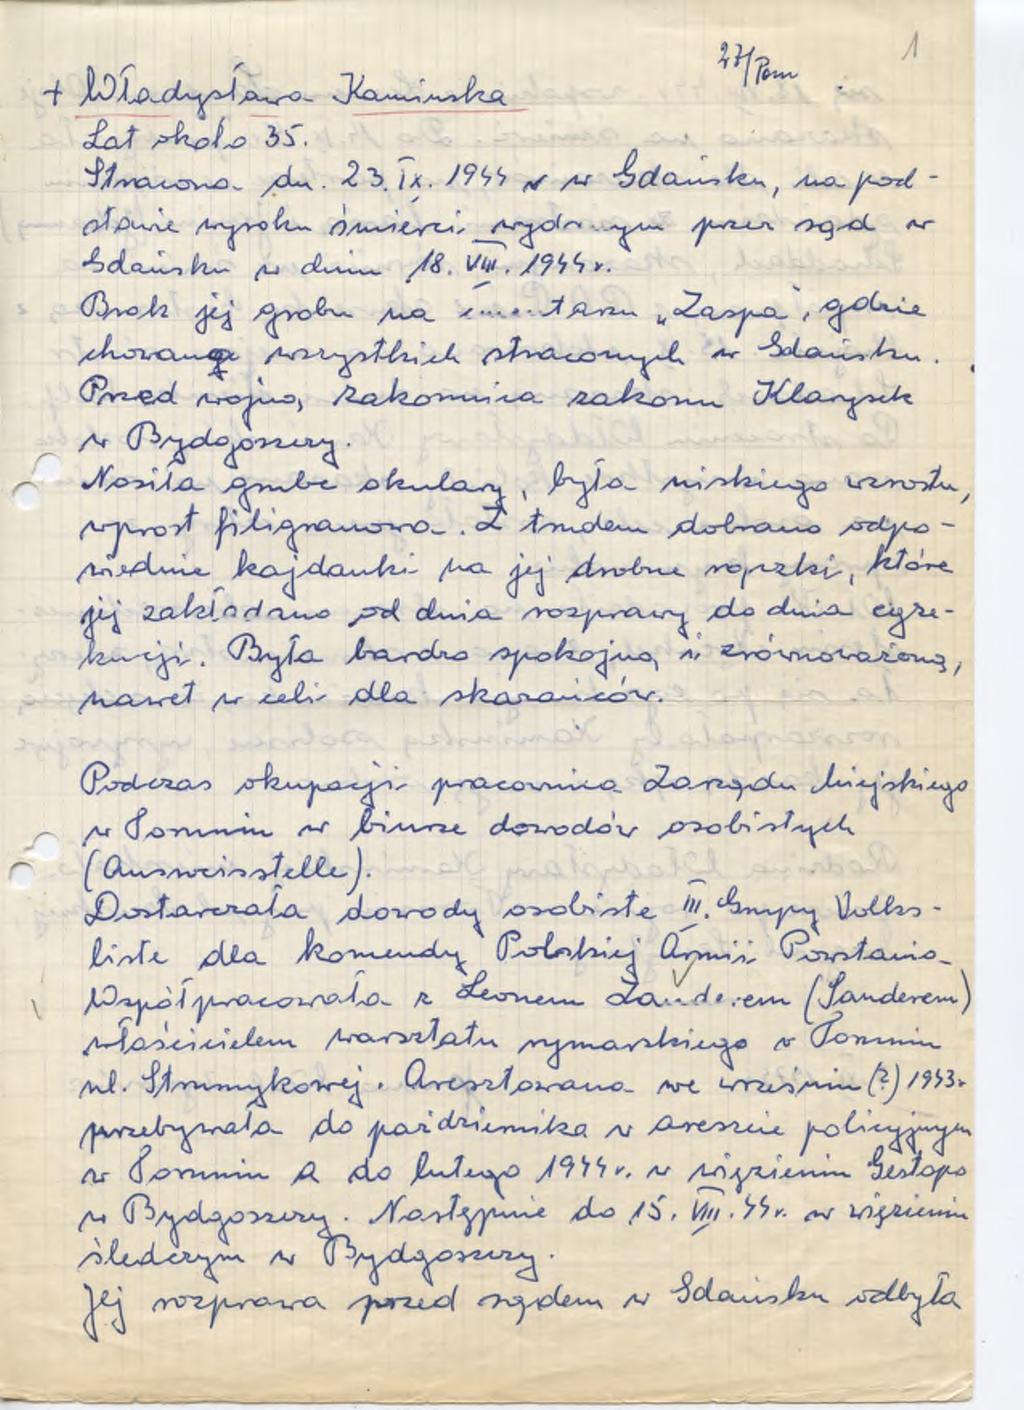 27/Pom
1
+ Władysława Kamińska
Lat około 35.
Stracona dn. 23. IX. 1944 r w Gdańsku, na pod-
stawie wyroku śmierci wydanym przez sąd w
Gdańsku w dniu 18. VIII. 1944 r.
Brak jej grobu na cmentarzu „Zaspa", gdzie
chowano wszystkich straconych w Gdańsku.
Przed wojną zakonnica zakonu Klarysek
w Bydgoszczy.
Nosiła grube okulary, była niskiego wzrostu,
wprost filigranowa. Z trudem dobrano odpo-
wiednie kajdanki na jej drobne rączki, które
jej zakładano od dnia rozprawy do dnia egze-
kucji. Była bardzo spokojną i zrównoważoną,
nawet w celi dla skazańców.
Podczas okupacji pracownica Zarządu Miejskiego
w Toruniu w biurze dowodów osobistych
(Ausweisstelle).
Dostarczała dowody osobiste III. Grupy Volks-
liste dla komendy Polskiej Armii Powstania.
Współpracowała z Leonem Zanderem (Sanderem)
właścicielem warsztatu rymarskiego w Toruniu
ul. Strumykowej. Aresztowana we wrześniu (?) 1943r
przebywała do października w areszcie policyjnym
w Toruniu a do lutego 1944r. w więzieniu Gestapo
w Bydgoszczy. Następnie do 15. VIII. 44r. w więzieniu
śledczym w Bydgoszczy.
Jej rozprawa przed sądem w Gdańsku odbyła